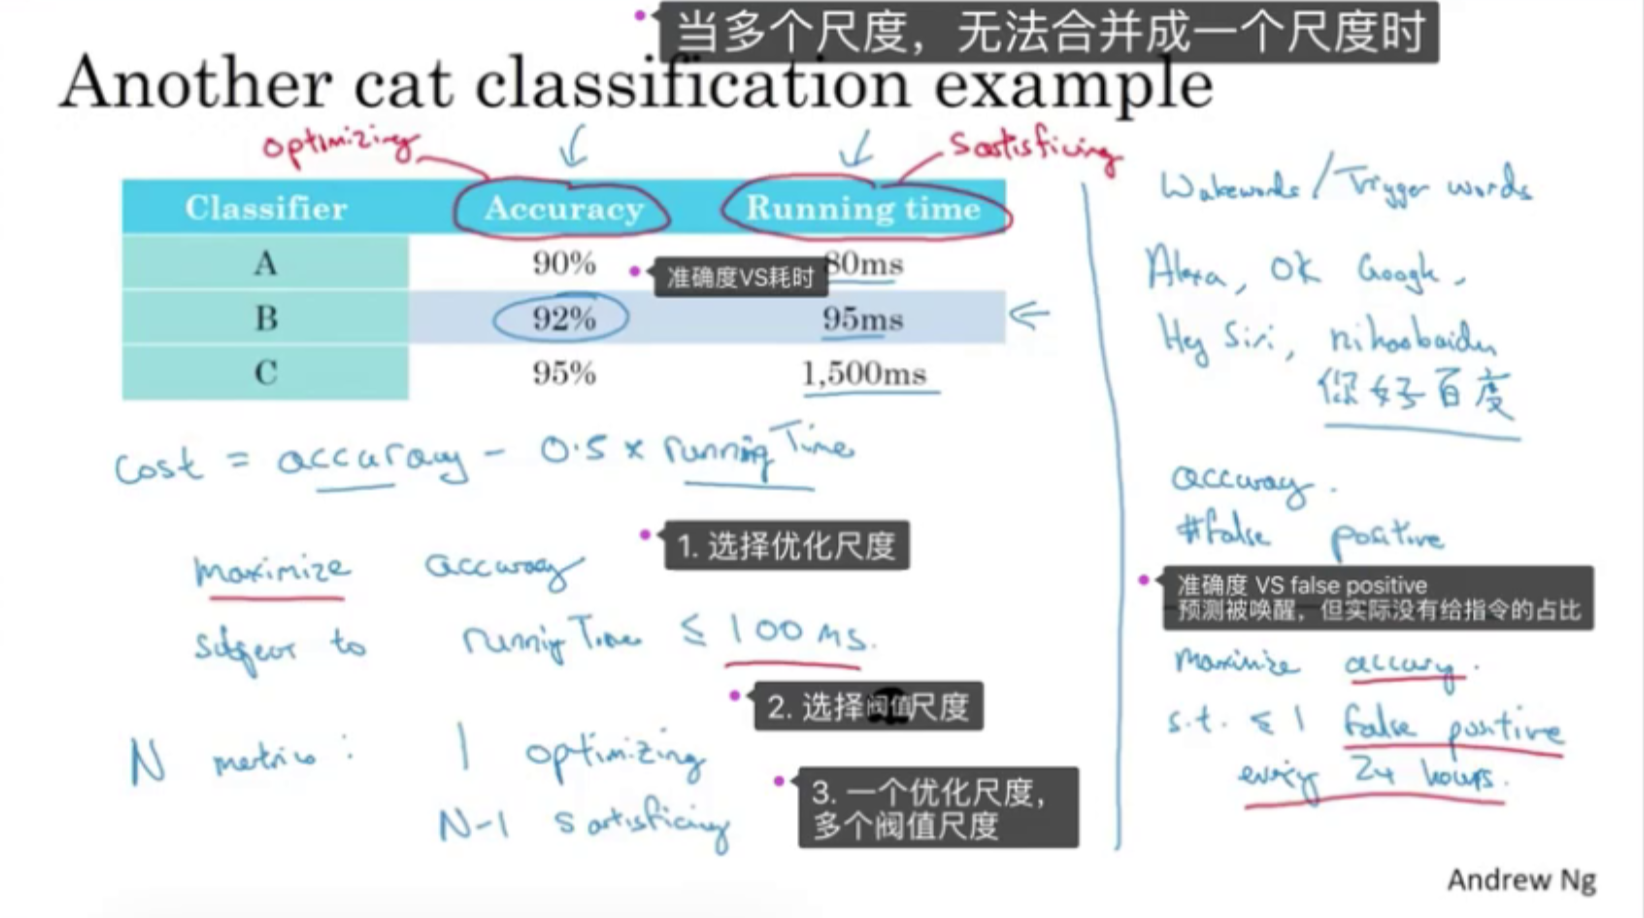 当多个尺度，无法合并成一个尺度时
Another cat classification example
optimizing
satisficing
Classifier Accuracy Running time
A 90% 80ms
准确度VS耗时
B 92% 95ms
C 95% 1,500ms
cost = accuracy - 0.5 x running Time
1. 选择优化尺度
maximize accuracy
subject to running Time ≤ 100 ms.
2. 选择阀值尺度
N metrics: 1 optimizing
N-1 satisficing
3. 一个优化尺度，
多个阀值尺度
Wakewords / Trigger words
Alexa, OK Google,
Hey Siri, nihaobaidu
你好百度
accuracy.
#false positive
准确度 VS false positive
预测被唤醒，但实际没有给指令的占比
maximize accuracy.
s.t. ≤ 1 false positive
every 24 hours.
Andrew Ng